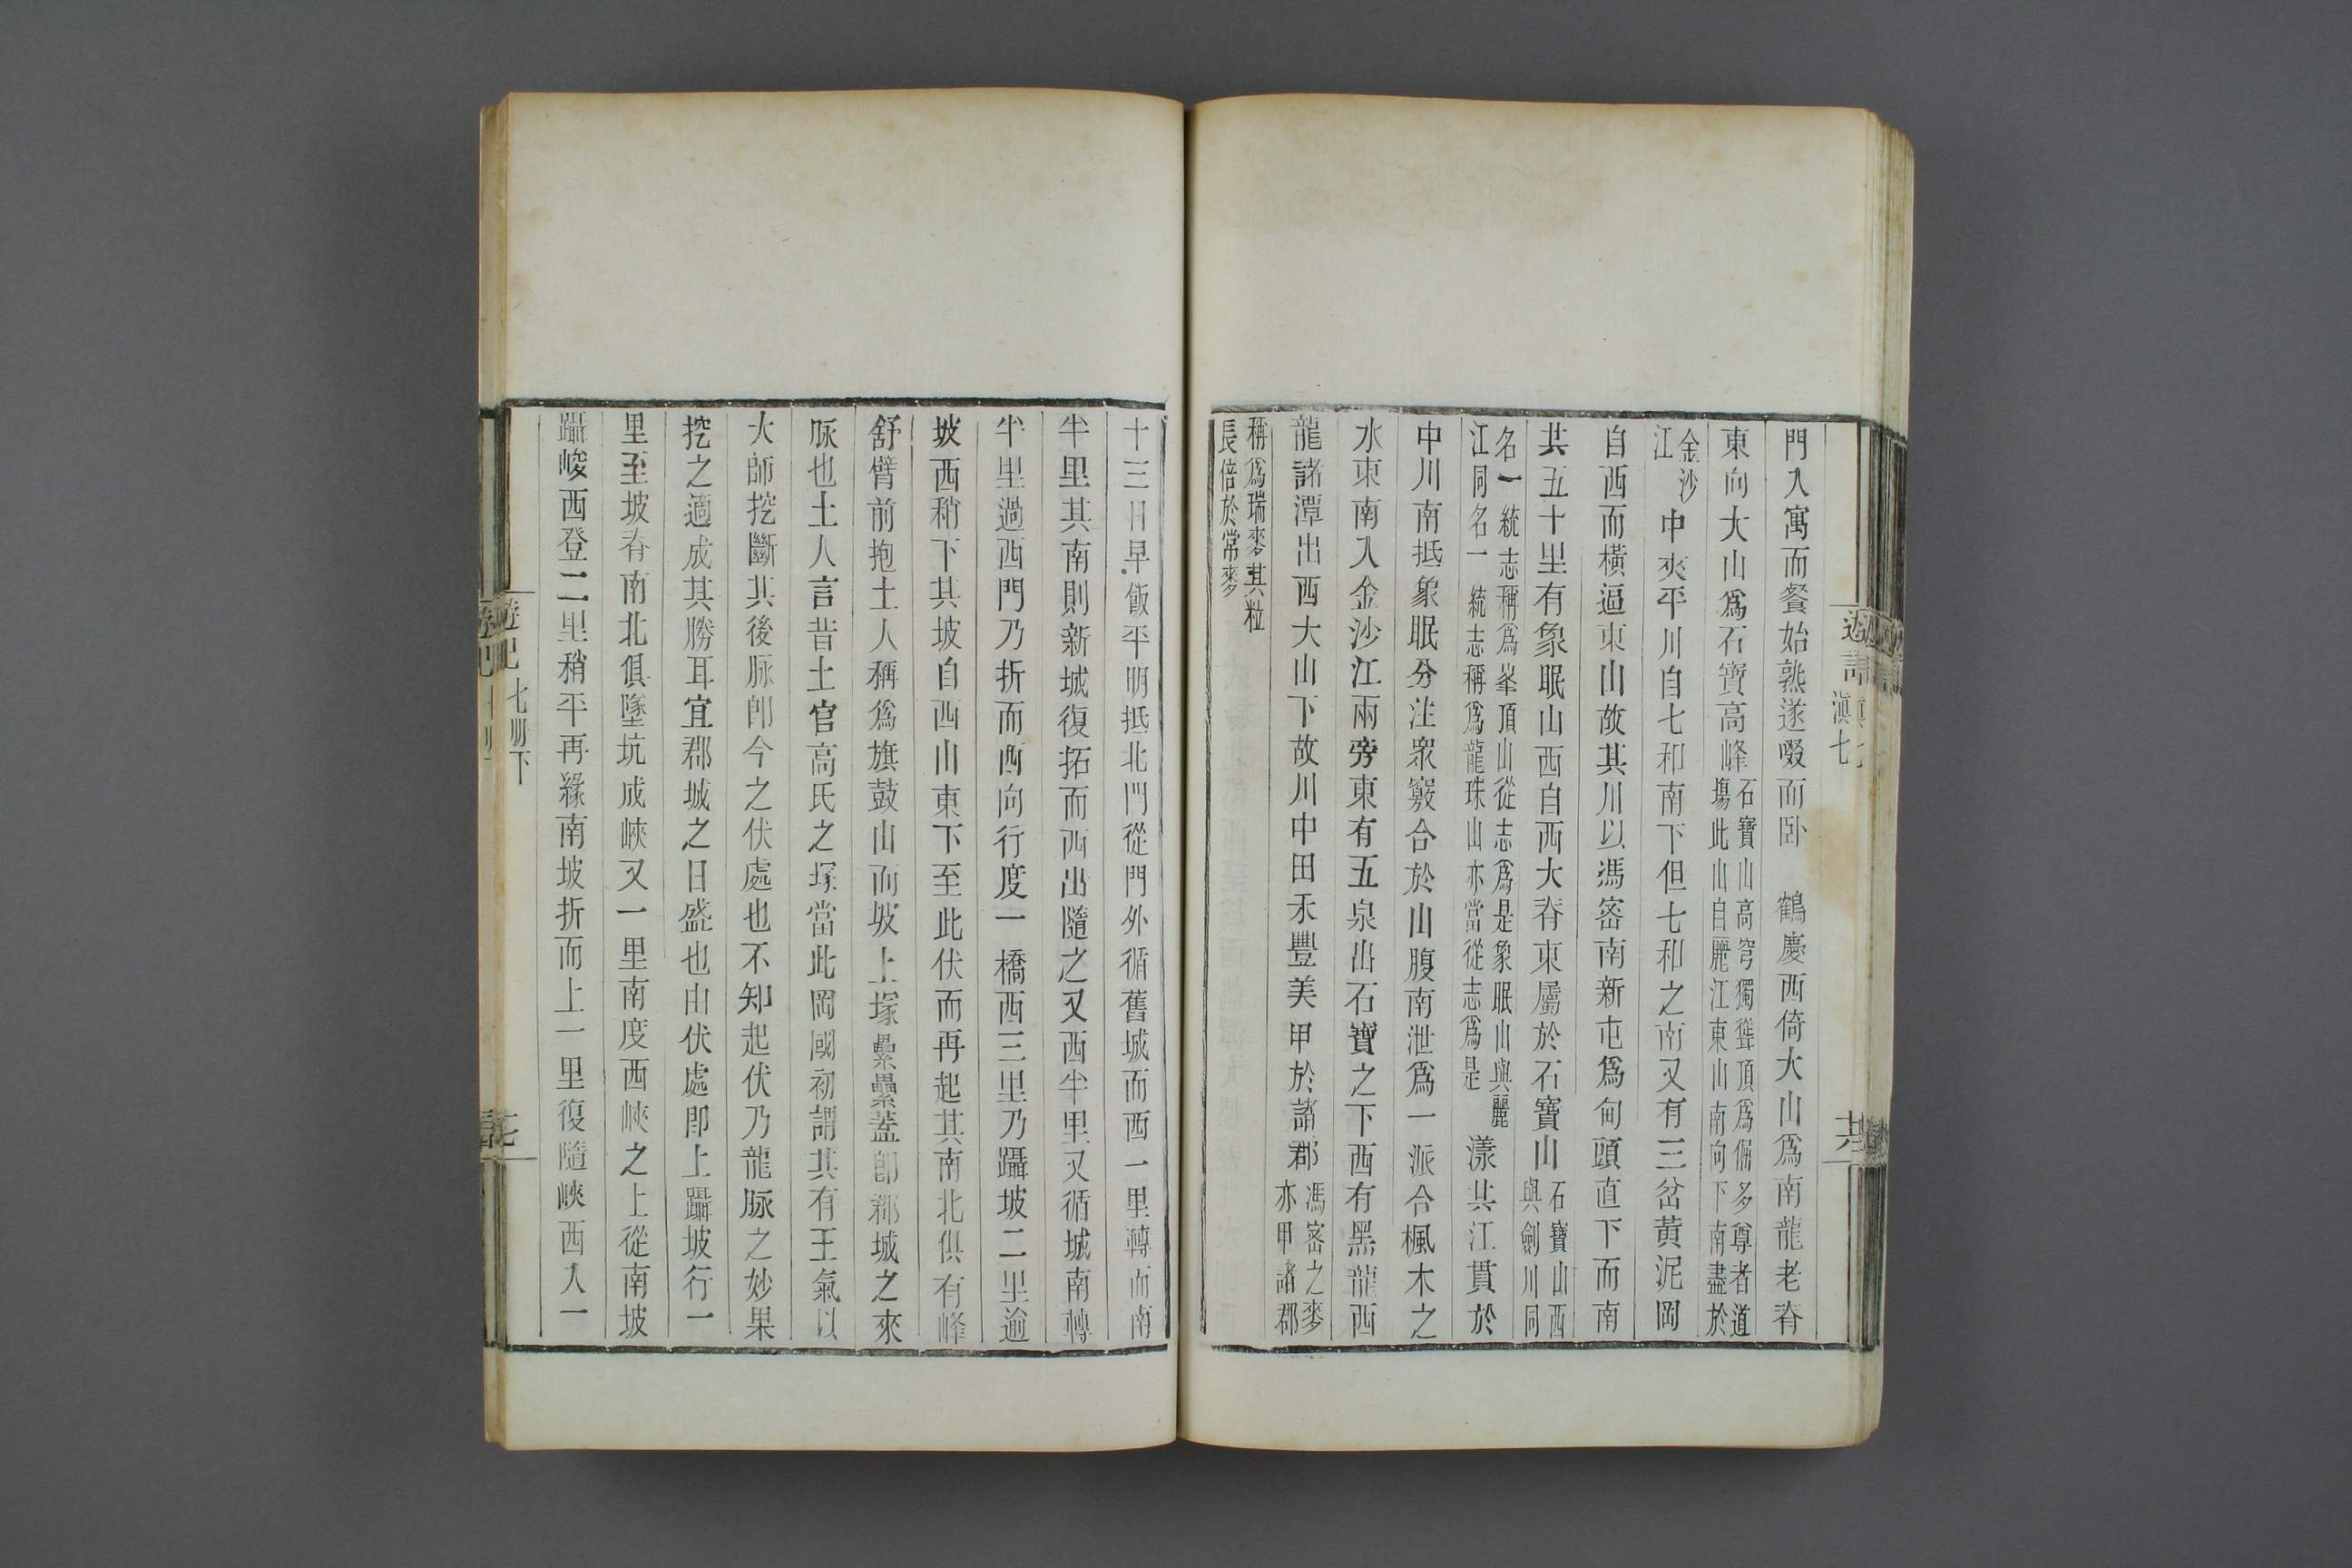 門入寓而餐始熟遂啜而卧　鶴慶西倚大山爲南龍老脊
東向大山爲石寶高峰石寶山高穹獨聳頂爲倔多尊者道塲此山自麗江東山南向下南盡於
金沙江中夾平川自七和南下但七和之南又有三岔黄泥岡
自西而橫逼東山故其川以馮密南新屯爲甸頭直下而南
共五十里有象眠山西自西大脊東屬於石寶山石寶山西與劍川同
名一統志稱爲峯頂山從志爲是象眠山與麗江同名一統志稱爲龍珠山亦當從志爲是漾共江貫於
中川南抵象眠分注衆竅合於山腹南泄爲一派合楓木之
水東南入金沙江兩旁東有五泉出石寶之下西有黑龍西
龍諸潭出西大山下故川中田禾豐美甲於諸郡馮密之麥亦甲諸郡
稱爲瑞麥其粒長倍於常麥
遊記
滇七
十三日早飯平明抵北門從門外循舊城而西一里轉而南
半里其南則新城復拓而西出隨之又西半里又循城南轉
半里過西門乃折而西向行度一橋西三里乃躡坡二里逾
坡西稍下其坡自西山東下至此伏而再起其南北俱有峰
舒臂前抱土人稱爲旗鼓山而坡上塚纍纍蓋卽郡城之來
脉也土人言昔土官高氏之塚當此岡國初謂其有王氣以
大師挖斷其後脉卽今之伏處也不知起伏乃龍脉之妙果
挖之適成其勝耳宜郡城之日盛也由伏處卽上躡坡行一
里至坡脊南北俱墜坑成峽又一里南度西峽之上從南坡
躡峻西登二里稍平再緣南坡折而上一里復隨峽西入一
遊記
七册下